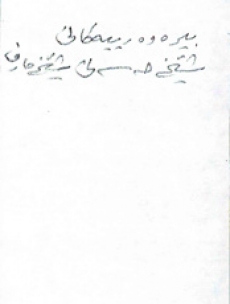 بیرەوەرییەکانی
شێخ حەسەنی شێخ مارف